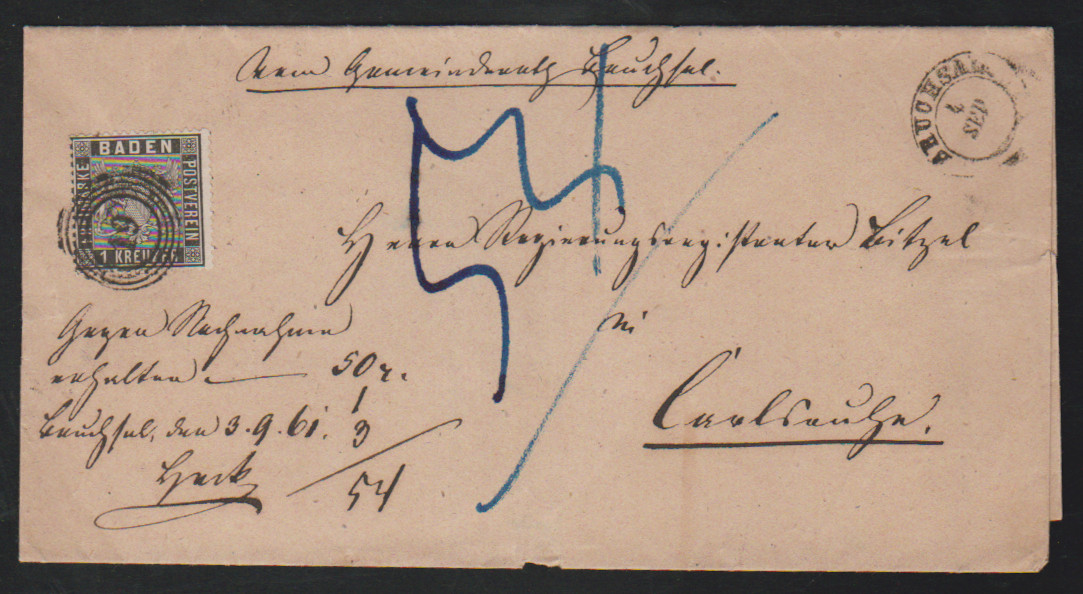 Vom Gemeinderath Bruchsal.
BRUCHSAL
4
SEP
BADEN
FREIMARKE
POSTVEREIN
1 KREUZER
24
54
Herrn Regierungsregistrator Bitzel
in
Carlsruhe.
Gegen Nachnahme
erhalten 50 x.
1
Bruchsal, den 3. 9. 61. 3
Heck 54